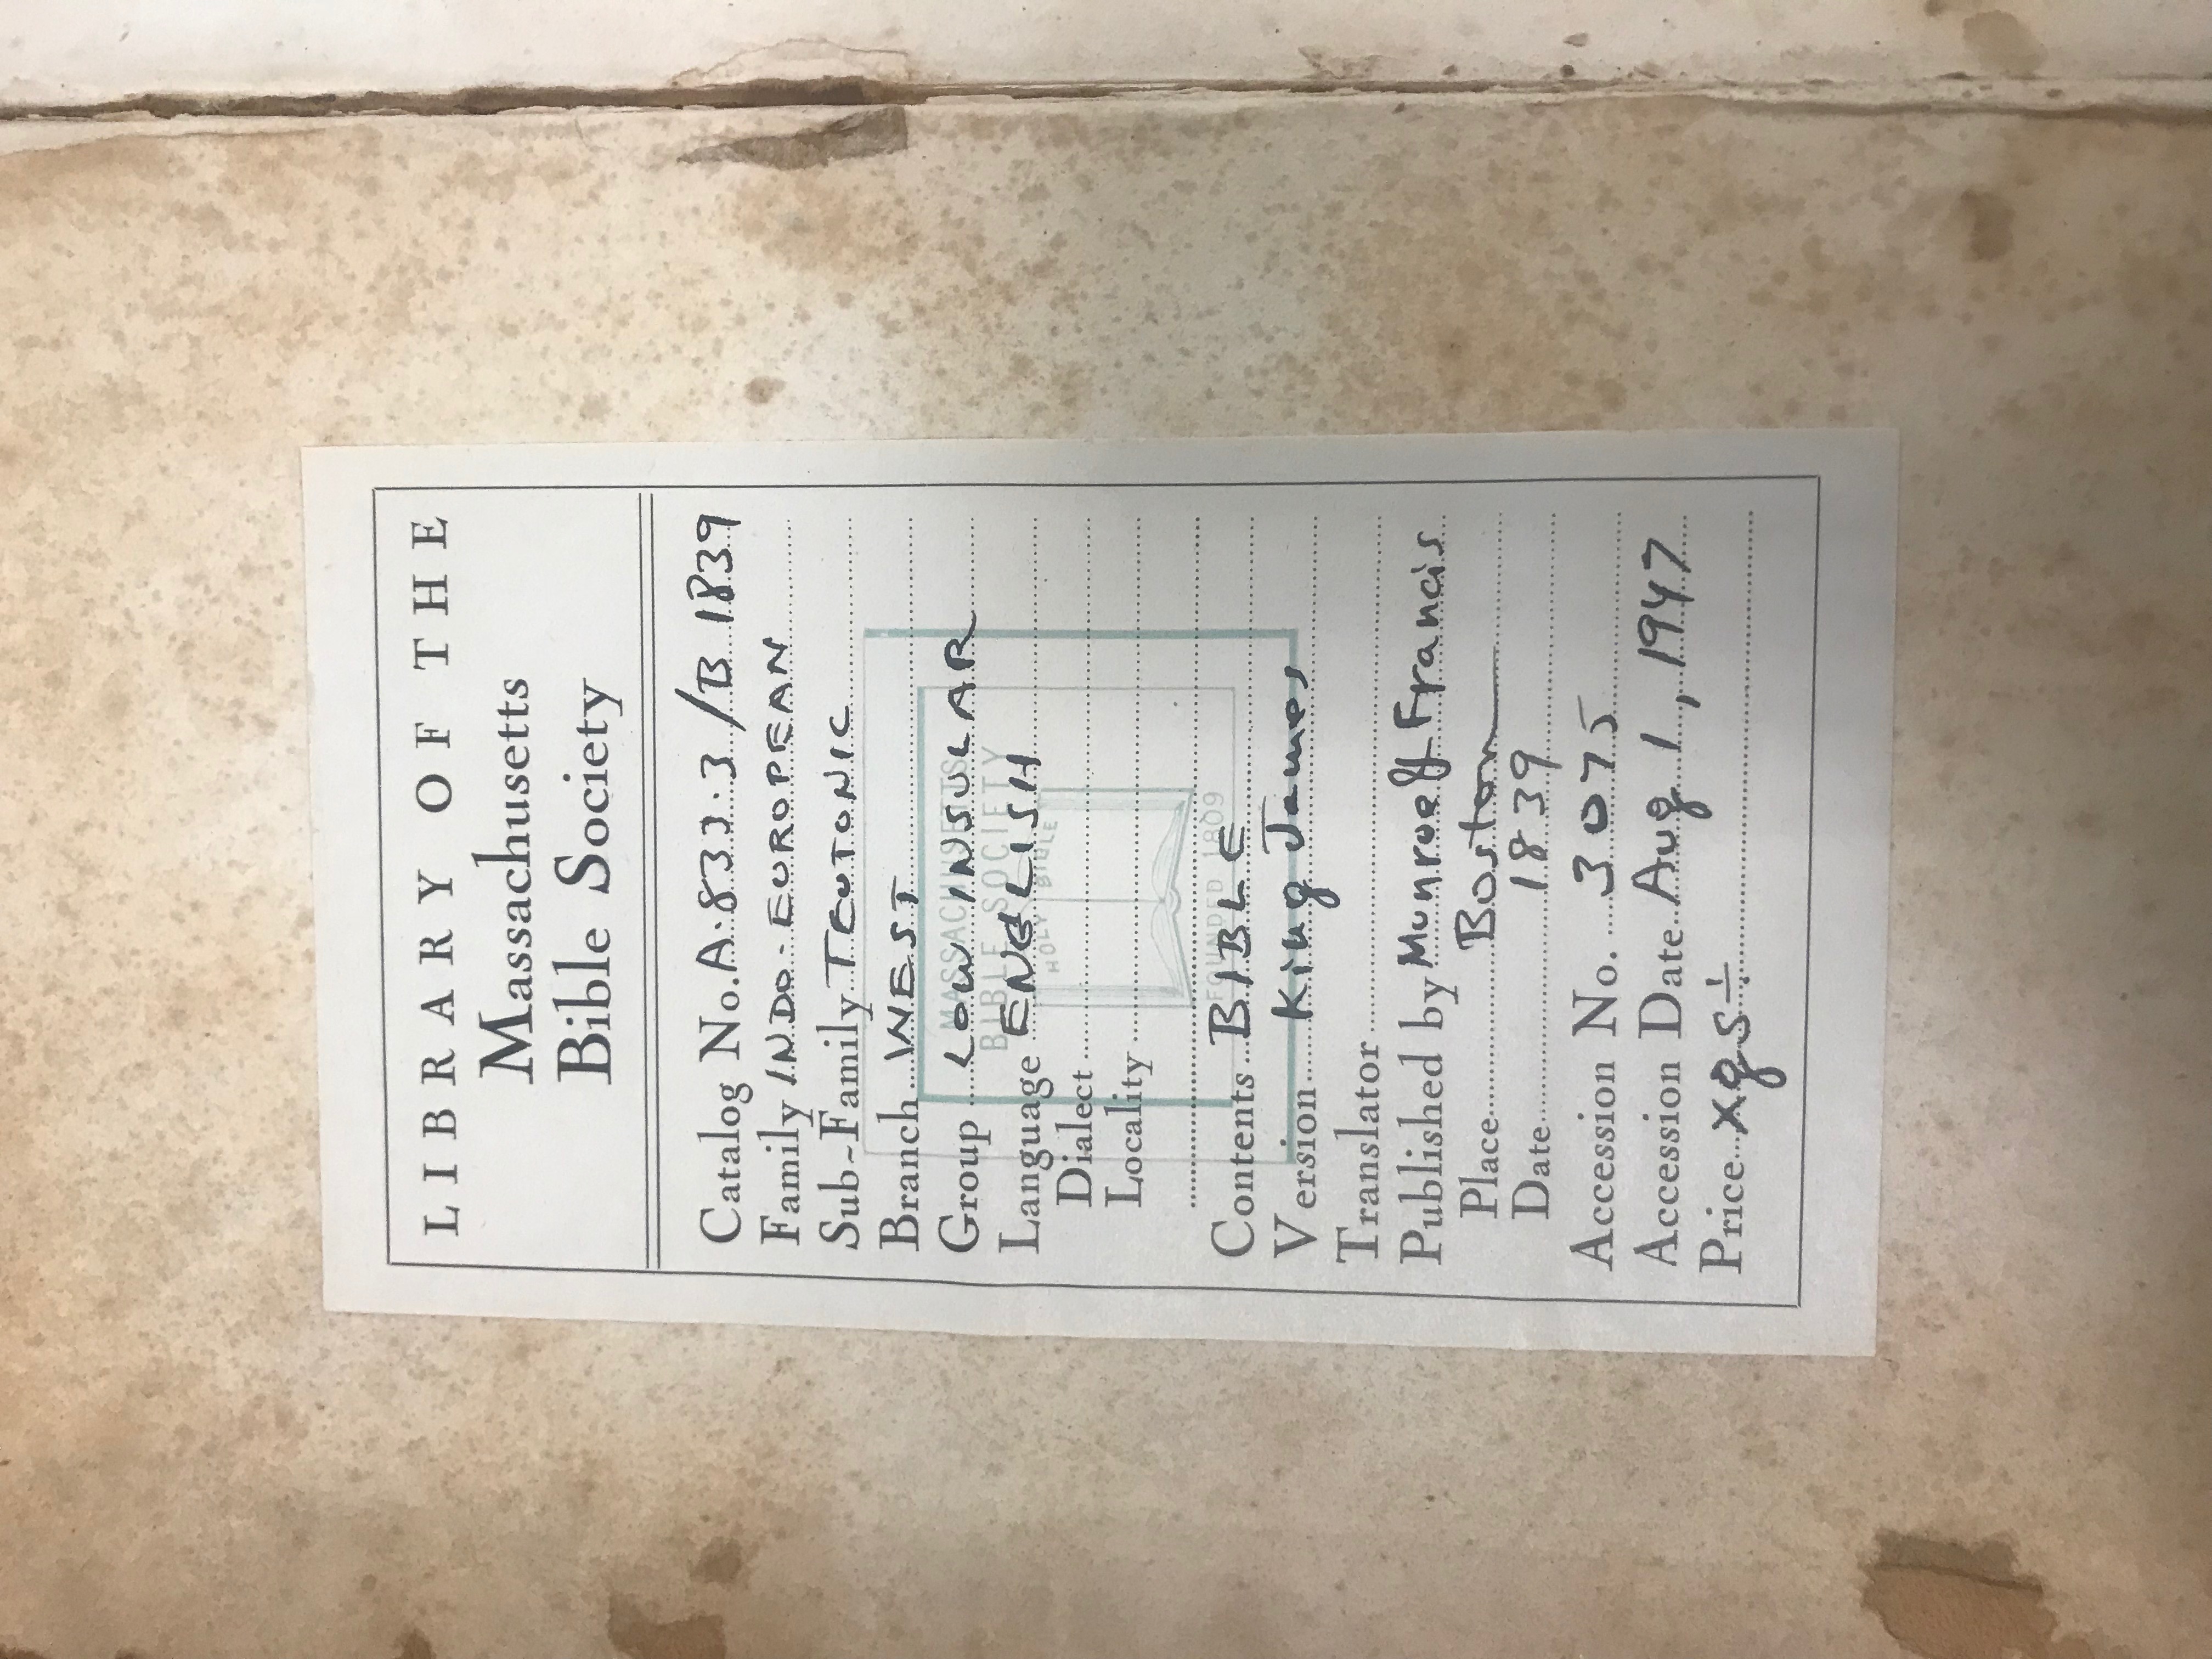 LIBRARY OF THE
Massachusetts
Bible Society
Catalog No. A.833.3/B 1839
Family INDO-EUROPEAN
Sub-Family TEUTONIC
Branch WEST
Group LOW INSULAR
Language ENGLISH
Dialect
Locality
Contents BIBLE
Version King James
Translator
Published by Munroe & Francis
Place Boston
Date 1839
Accession No. 3075
Accession Date Aug 1, 1947
Price
MASSACHUSETTS
BIBLE SOCIETY
HOLY BIBLE
FOUNDED 1809